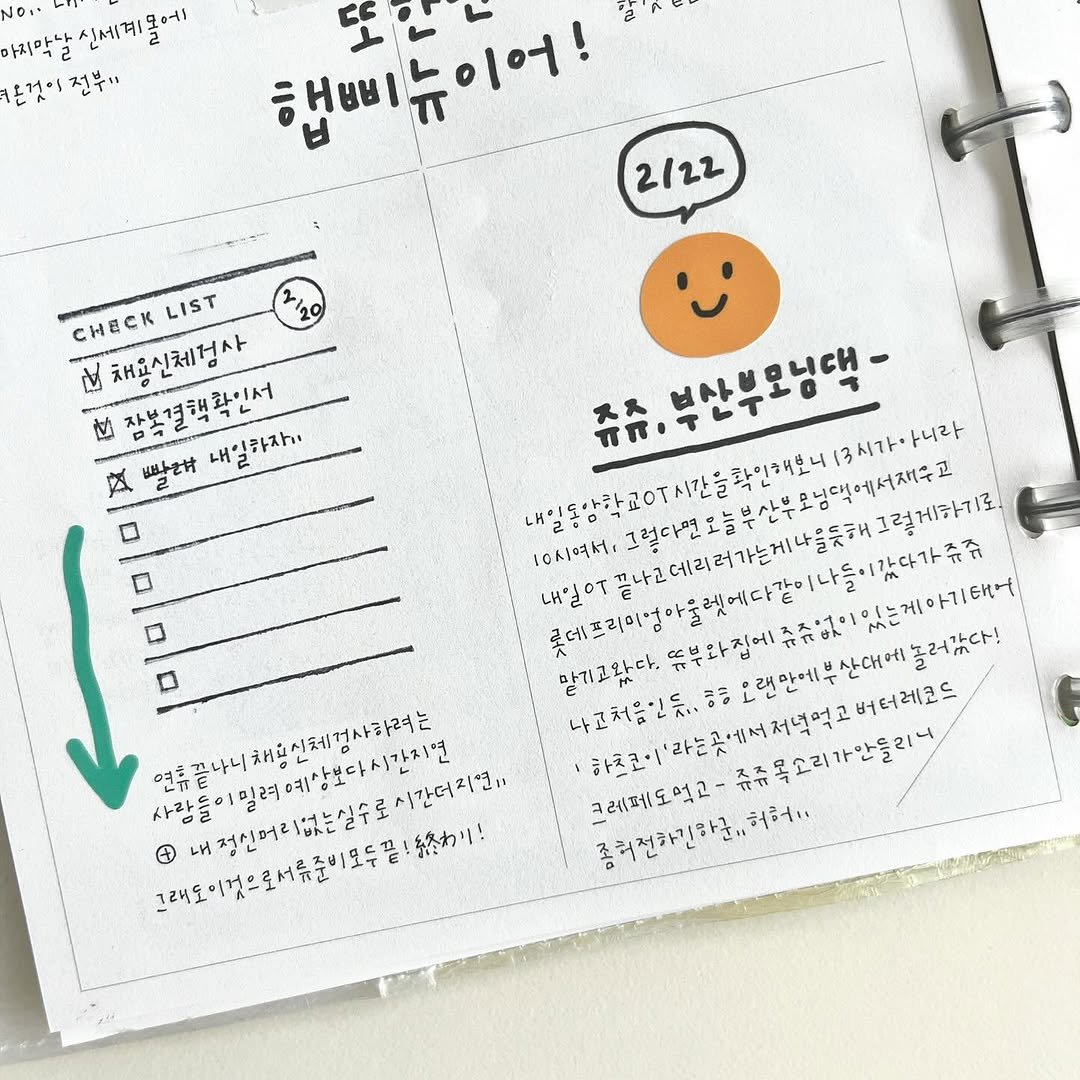 마지막날 신세계몰에
온것이 전부,,
또한번
햅삐뉴이어!
CHECK LIST
2/20
채용신체검사
잠복결핵확인서
빨래 내일하자,,
연휴끝나니 채용신체검사하려는
사람들이 밀려 예상보다 시간지연
⊕ 내 정신머리없는실수로 시간더지연,,
그래도이것으로서류준비모두끝! 終わり!
2/22
쥬쥬, 부산부모님댁 -
내일동암학교OT시간을확인해보니 13시가아니라
10시여서, 그렇다면오늘부산부모님댁에서재우고
내일OT 끝나고데리러가는게나을듯해 그렇게하기로.
롯데프리미엄아울렛에다같이나들이갔다가 쥬쥬
맡기고왔다. 뜌부와집에 쥬쥬없이 있는게아기태어
나고처음인듯,, ㅎㅎ 오랜만에부산대에 놀러갔다!
'하츠코이'라는곳에서저녁먹고버터레코드
크레페도먹고 - 쥬쥬목소리가안들리니
좀허전하긴하군,, 허허,,